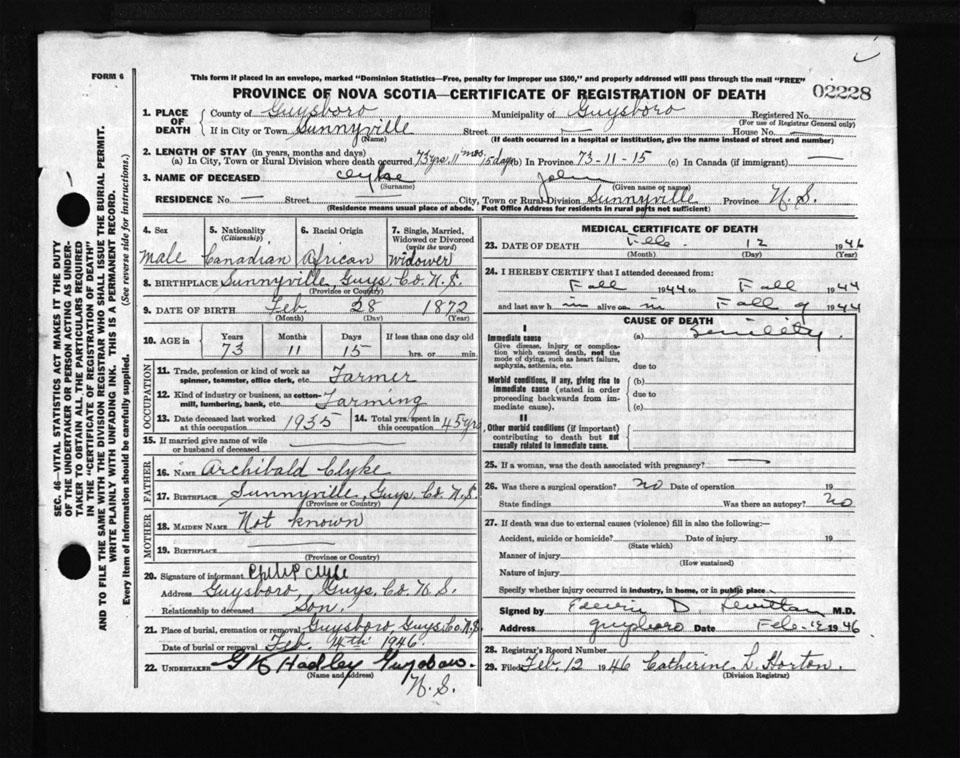 FORM 6
This form if placed in an envelope, marked "Dominion Statistics—Free, penalty for improper use $300," and properly addressed will pass through the mail "FREE"
PROVINCE OF NOVA SCOTIA—CERTIFICATE OF REGISTRATION OF DEATH
02228
1. PLACE OF DEATH
County of Guysboro Municipality of Guysboro Registered No.
(For use of Registrar General only)
If in City or Town Sunnyville Street — House No. —
(Name) (If death occurred in hospital or institution, give the name instead of street and number)
2. LENGTH OF STAY (in years, months and days)
(a) In City, Town or Rural Division where death occurred 73 yrs. 11 mos. 15 days (b) In Province 73-11-15 (c) In Canada (if immigrant) —
3. NAME OF DECEASED Clyke John
(Surname) (Given name or names)
RESIDENCE No. — Street — City, Town or Rural Division Sunnyville Province N.S.
(Residence means usual place of abode. Post Office Address for residents in rural parts not sufficient)
4. Sex Male
5. Nationality (Citizenship) Canadian
6. Racial Origin African
7. Single, Married, Widowed or Divorced (write the word) Widower
8. BIRTHPLACE Sunnyville, Guys. Co. N.S.
(Province or Country)
9. DATE OF BIRTH Feb. 28 1872
(Month) (Day) (Year)
10. AGE in Years Months Days If less than one day old
73 11 15 hrs. or min.
OCCUPATION
11. Trade, profession or kind of work as spinner, teamster, office clerk, etc. Farmer
12. Kind of industry or business, as cotton-mill, lumbering, bank, etc. Farming
13. Date deceased last worked at this occupation 1935
14. Total yrs. spent in this occupation 45 yrs
15. If married give name of wife or husband of deceased —
FATHER
16. NAME Archibald Clyke
17. BIRTHPLACE Sunnyville, Guys. Co. N.S.
(Province or Country)
MOTHER
18. MAIDEN NAME Not known
19. BIRTHPLACE —
(Province or Country)
20. Signature of informant Philip Clyke
Address Guysboro, Guys. Co. N.S.
Relationship to deceased Son.
21. Place of burial, cremation or removal Guysboro, Guys. Co. N.S.
Date of burial or removal Feb. 14th 1946.
22. UNDERTAKER G K Hadley Guysboro
(Name and Address)
N.S.
MEDICAL CERTIFICATE OF DEATH
23. DATE OF DEATH Feb. 12 1946
(Month) (Day) (Year)
24. I HEREBY CERTIFY that I attended deceased from:
Fall 1944 to Fall 1944
and last saw h im alive on Fall 9 1944
CAUSE OF DEATH
I
Immediate cause (a) Senility
Give disease, injury or complication which caused death, not the mode of dying, such as heart failure, asphyxia, asthenia, etc.
due to
Morbid conditions, if any, giving rise to immediate cause (stated in order proceeding backwards from immediate cause).
(b)
due to
(c)
II
Other morbid conditions (if important) contributing to death but not causally related to immediate cause.
25. If a woman, was the death associated with pregnancy? —
26. Was there a surgical operation? No Date of operation 19
State findings Was there an autopsy? No
27. If death was due to external causes (violence) fill in also the following:—
Accident, suicide or homicide? Date of injury 19
(State which)
Manner of injury
(How sustained)
Nature of injury
Specify whether injury occurred in industry, in home, or in public place
Signed by D. M.D.
Address Guysboro Date Feb. 1946
28. Registrar's Record Number
29. Filed Feb. 12 1946 Catherine L. Horton.
(Division Registrar)
SEC. 46—VITAL STATISTICS ACT MAKES IT THE DUTY
OF THE UNDERTAKER OR PERSON ACTING AS UNDER-
TAKER TO OBTAIN ALL THE PARTICULARS REQUIRED
IN THE "CERTIFICATE OF REGISTRATION OF DEATH"
AND TO FILE THE SAME WITH THE DIVISION REGISTRAR WHO SHALL ISSUE THE BURIAL PERMIT.
WRITE PLAINLY WITH UNFADING INK. THIS IS A PERMANENT RECORD.
Every item of information should be carefully supplied. (See reverse side for instructions.)